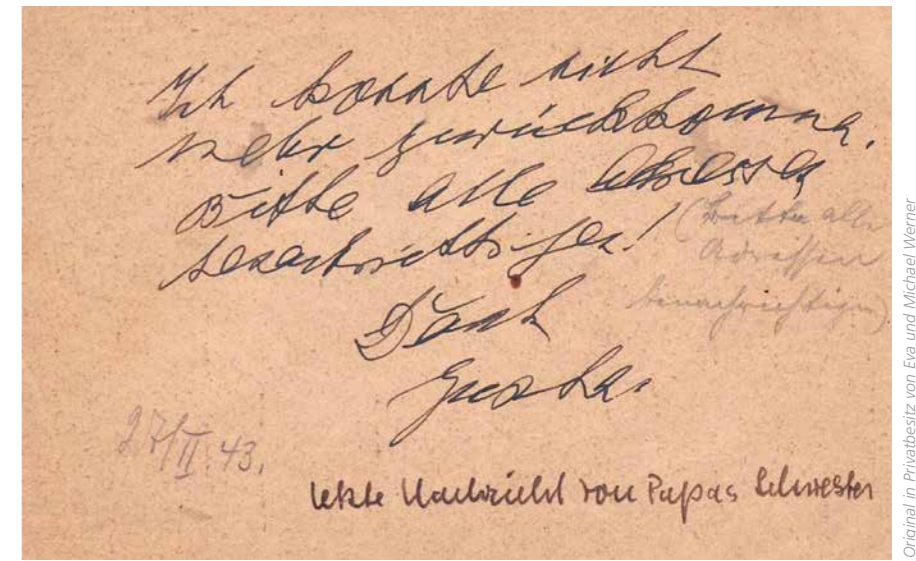 Ich konnte nicht
mehr zurückkommen.
Bitte alle Adressen
benachrichtigen!
(bitte alle
Adressen
benachrichtigen)
Dank
Gusta.
27/II.43.
letzte Nachricht von Papas Schwester
Original in Privatbesitz von Eva und Michael Werner